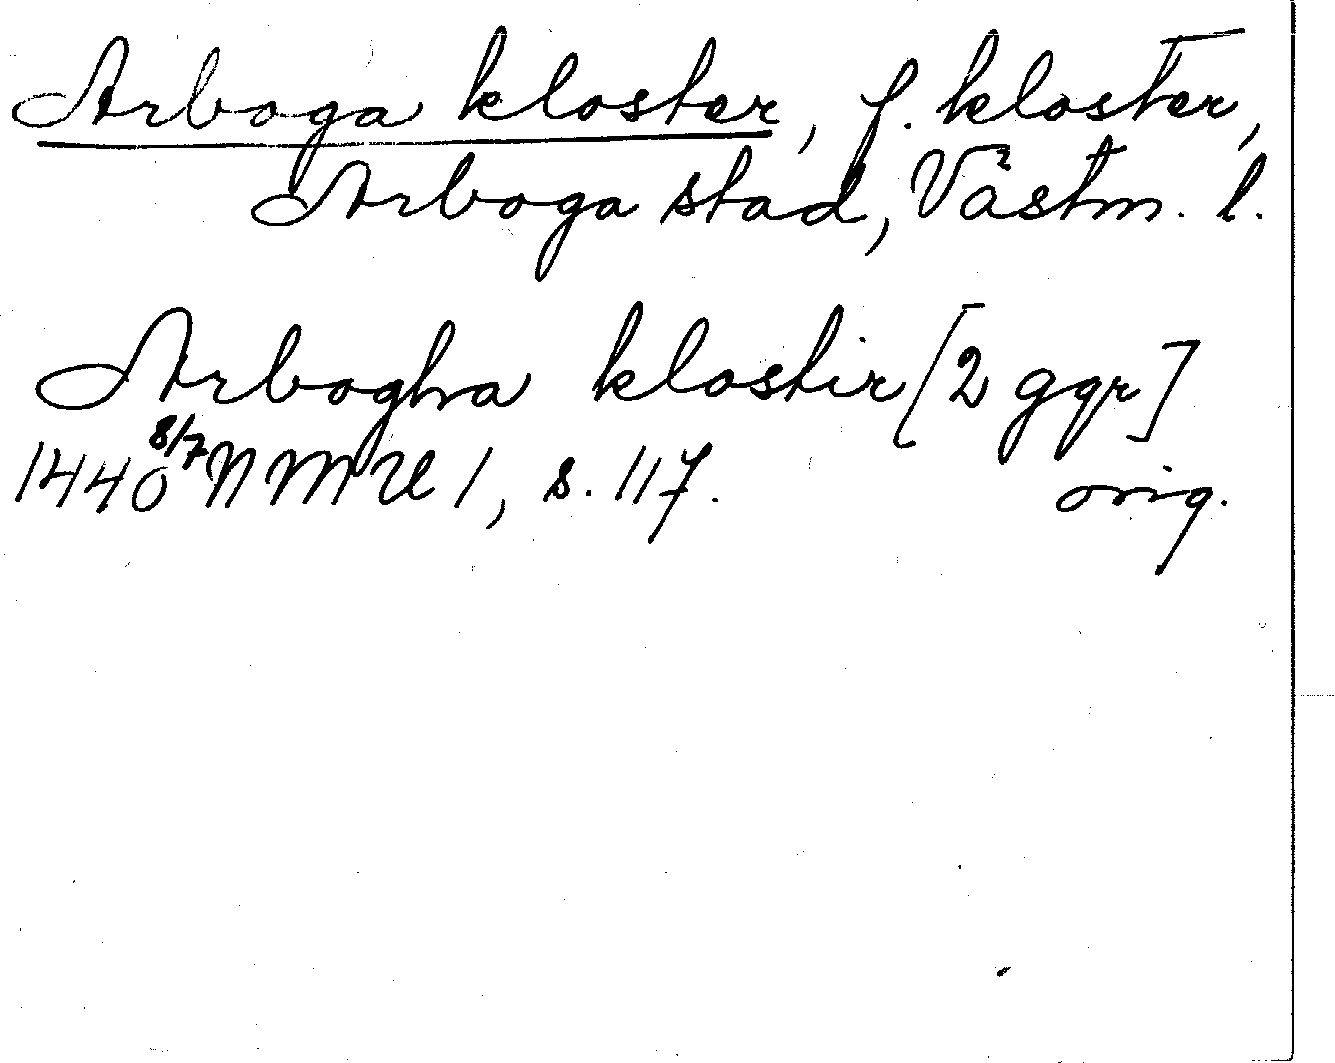 Arboga kloster, f. kloster,
Arboga stad, Västm. l.
Arbogha klostir [2 ggr]
1440 8/7 NMU 1, s. 117. orig.